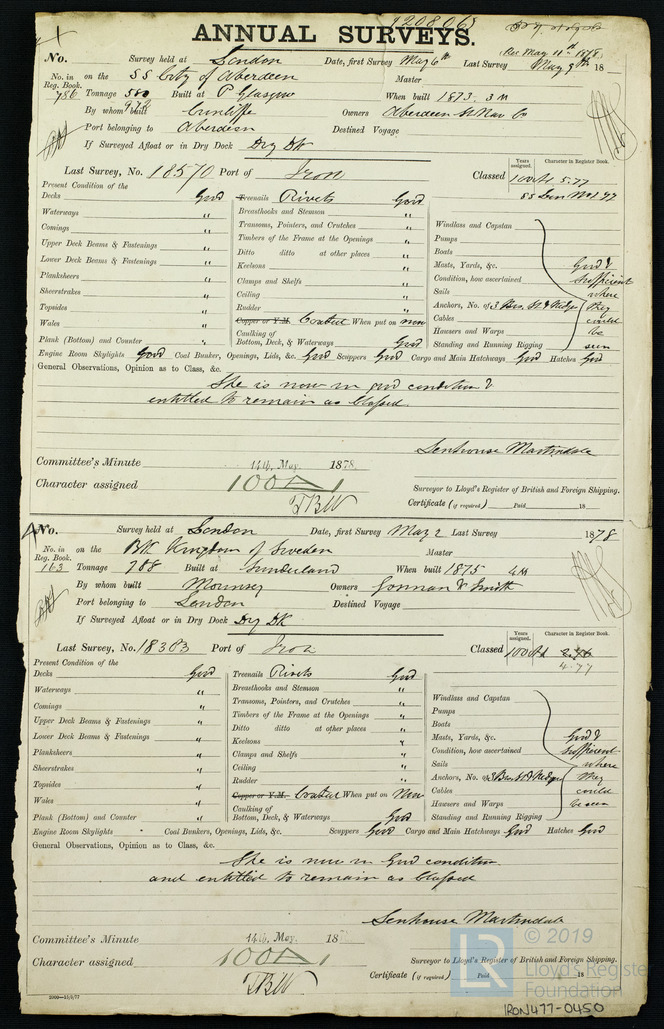 ANNUAL SURVEYS.
(Rec May 11th 1878)
No. Survey held at London Date, first Survey May 6th Last Survey May 9th 18
No. in Reg. Book. on the SS City of Aberdeen Master
786 Tonnage 580 972 Built at P Glasgow When built 1873. 3M
By whom built Cunliffe Owners Aberdeen St Nav Co
Port belonging to Aberdeen Destined Voyage
If Surveyed Afloat or in Dry Dock Dry Dk
Last Survey, No. 18570 Port of Iron Classed 100A1 5.77
Years assigned. Character in Register Book.
SS Lon No1.77
Present Condition of the
Decks Good Treenails Rivets Good
Waterways " Breasthooks and Stemson "
Comings " Transoms, Pointers, and Crutches "
Upper Deck Beams & Fastenings " Timbers of the Frame at the Openings "
Lower Deck Beams & Fastenings " Ditto ditto at other places "
Planksheers " Keelsons "
Sheerstrakes " Clamps and Shelfs "
Topsides " Ceiling "
Wales " Rudder "
Copper or Y.M. Coated When put on now
Plank (Bottom) and Counter " Caulking of Bottom, Deck, & Waterways Good
Windlass and Capstan
Pumps
Boats
Masts, Yards, &c. Good &
Condition, how ascertained sufficient
Sails where
Anchors, No. of 3 Brs. St & Kedge they
Cables could
Hawsers and Warps be
Standing and Running Rigging seen
Engine Room Skylights Good Coal Bunker, Openings, Lids, &c. Good Scuppers Good Cargo and Main Hatchways Good Hatches Good
General Observations, Opinion as to Class, &c.
She is now in good condition &
entitled to remain as Classed.
Senhouse Martindale
Committee's Minute 14th May 1878.
Character assigned 100A1
Surveyor to Lloyd's Register of British and Foreign Shipping.
TBW
Certificate (if required) Paid 18
No. Survey held at London Date, first Survey May 2 Last Survey 1878
No. in Reg. Book. on the BK Kingdom of Sweden Master
163 Tonnage 708 Built at Sunderland When built 1875 4M
By whom built Mounsey Owners Gorman & Smith
Port belonging to London Destined Voyage
If Surveyed Afloat or in Dry Dock Dry Dk
Last Survey, No. 18383 Port of Iron Classed 100A1
Years assigned. Character in Register Book.
4.77
Present Condition of the
Decks Good Treenails Rivets Good
Waterways " Breasthooks and Stemson "
Comings " Transoms, Pointers, and Crutches "
Upper Deck Beams & Fastenings " Timbers of the Frame at the Openings "
Lower Deck Beams & Fastenings " Ditto ditto at other places "
Planksheers " Keelsons "
Sheerstrakes " Clamps and Shelfs "
Topsides " Ceiling "
Wales " Rudder "
Copper or Y.M. Coated When put on Now
Plank (Bottom) and Counter " Caulking of Bottom, Deck, & Waterways Good
Windlass and Capstan
Pumps
Boats
Masts, Yards, &c. Good &
Condition, how ascertained sufficient
Sails where
Anchors, No. of 3 Brs St & Kedge they
Cables could
Hawsers and Warps be seen
Standing and Running Rigging
Engine Room Skylights Coal Bunkers, Openings, Lids, &c. Scuppers Good Cargo and Main Hatchways Good Hatches Good
General Observations, Opinion as to Class, &c.
She is now in Good condition
and entitled to remain as Classed
Senhouse Martindale
Committee's Minute 14th May. 18
Character assigned 100A1
Surveyor to Lloyd's Register of British and Foreign Shipping.
TBW
Certificate (if required) Paid 18
© 2019
LR Lloyd's Register Foundation
IRON477-0450